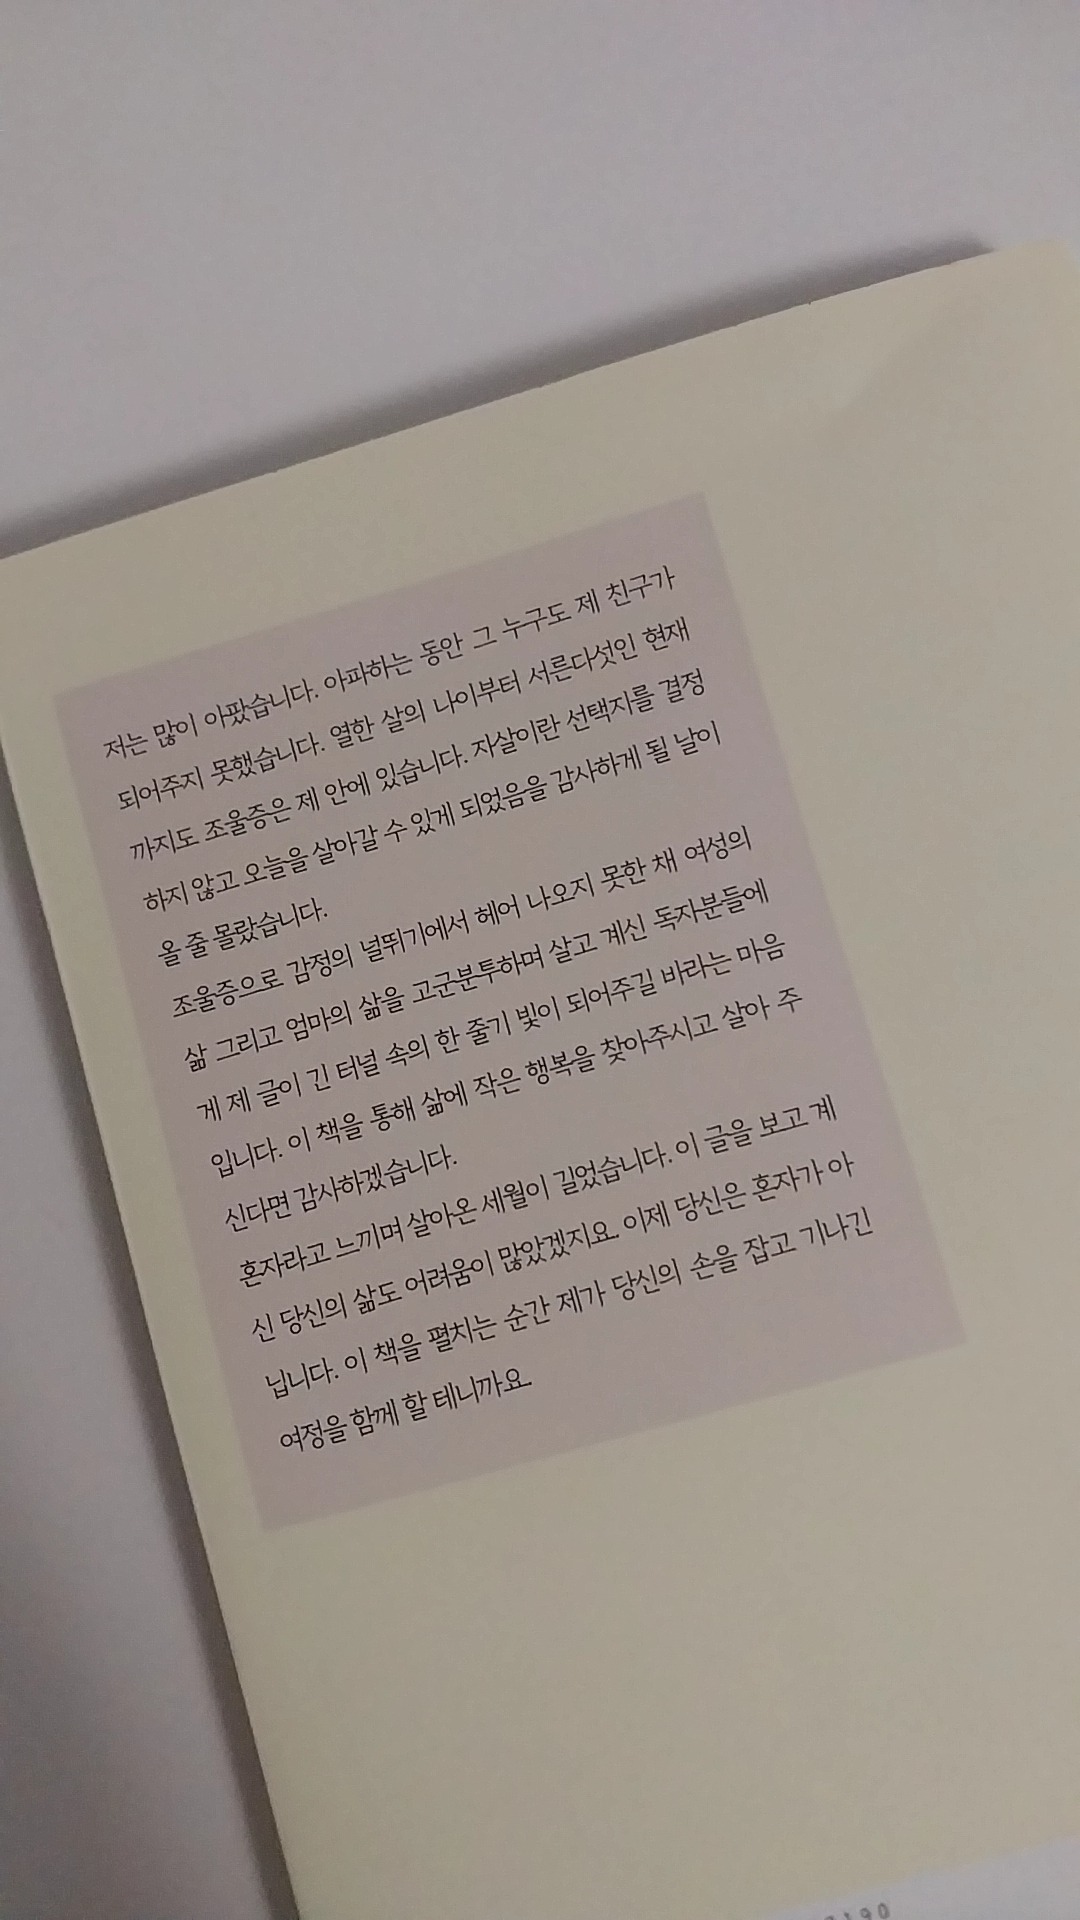 저는 많이 아팠습니다. 아파하는 동안 그 누구도 제 친구가
되어주지 못했습니다. 열한 살의 나이부터 서른다섯인 현재
까지도 조울증은 제 안에 있습니다. 자살이란 선택지를 결정
하지 않고 오늘을 살아갈 수 있게 되었음을 감사하게 될 날이
올 줄 몰랐습니다.
조울증으로 감정의 널뛰기에서 헤어 나오지 못한 채 여성의
삶 그리고 엄마의 삶을 고군분투하며 살고 계신 독자분들에
게 제 글이 긴 터널 속의 한 줄기 빛이 되어주길 바라는 마음
입니다. 이 책을 통해 삶에 작은 행복을 찾아주시고 살아 주
신다면 감사하겠습니다.
혼자라고 느끼며 살아온 세월이 길었습니다. 이 글을 보고 계
신 당신의 삶도 어려움이 많았겠지요. 이제 당신은 혼자가 아
닙니다. 이 책을 펼치는 순간 제가 당신의 손을 잡고 기나긴
여정을 함께 할 테니까요.